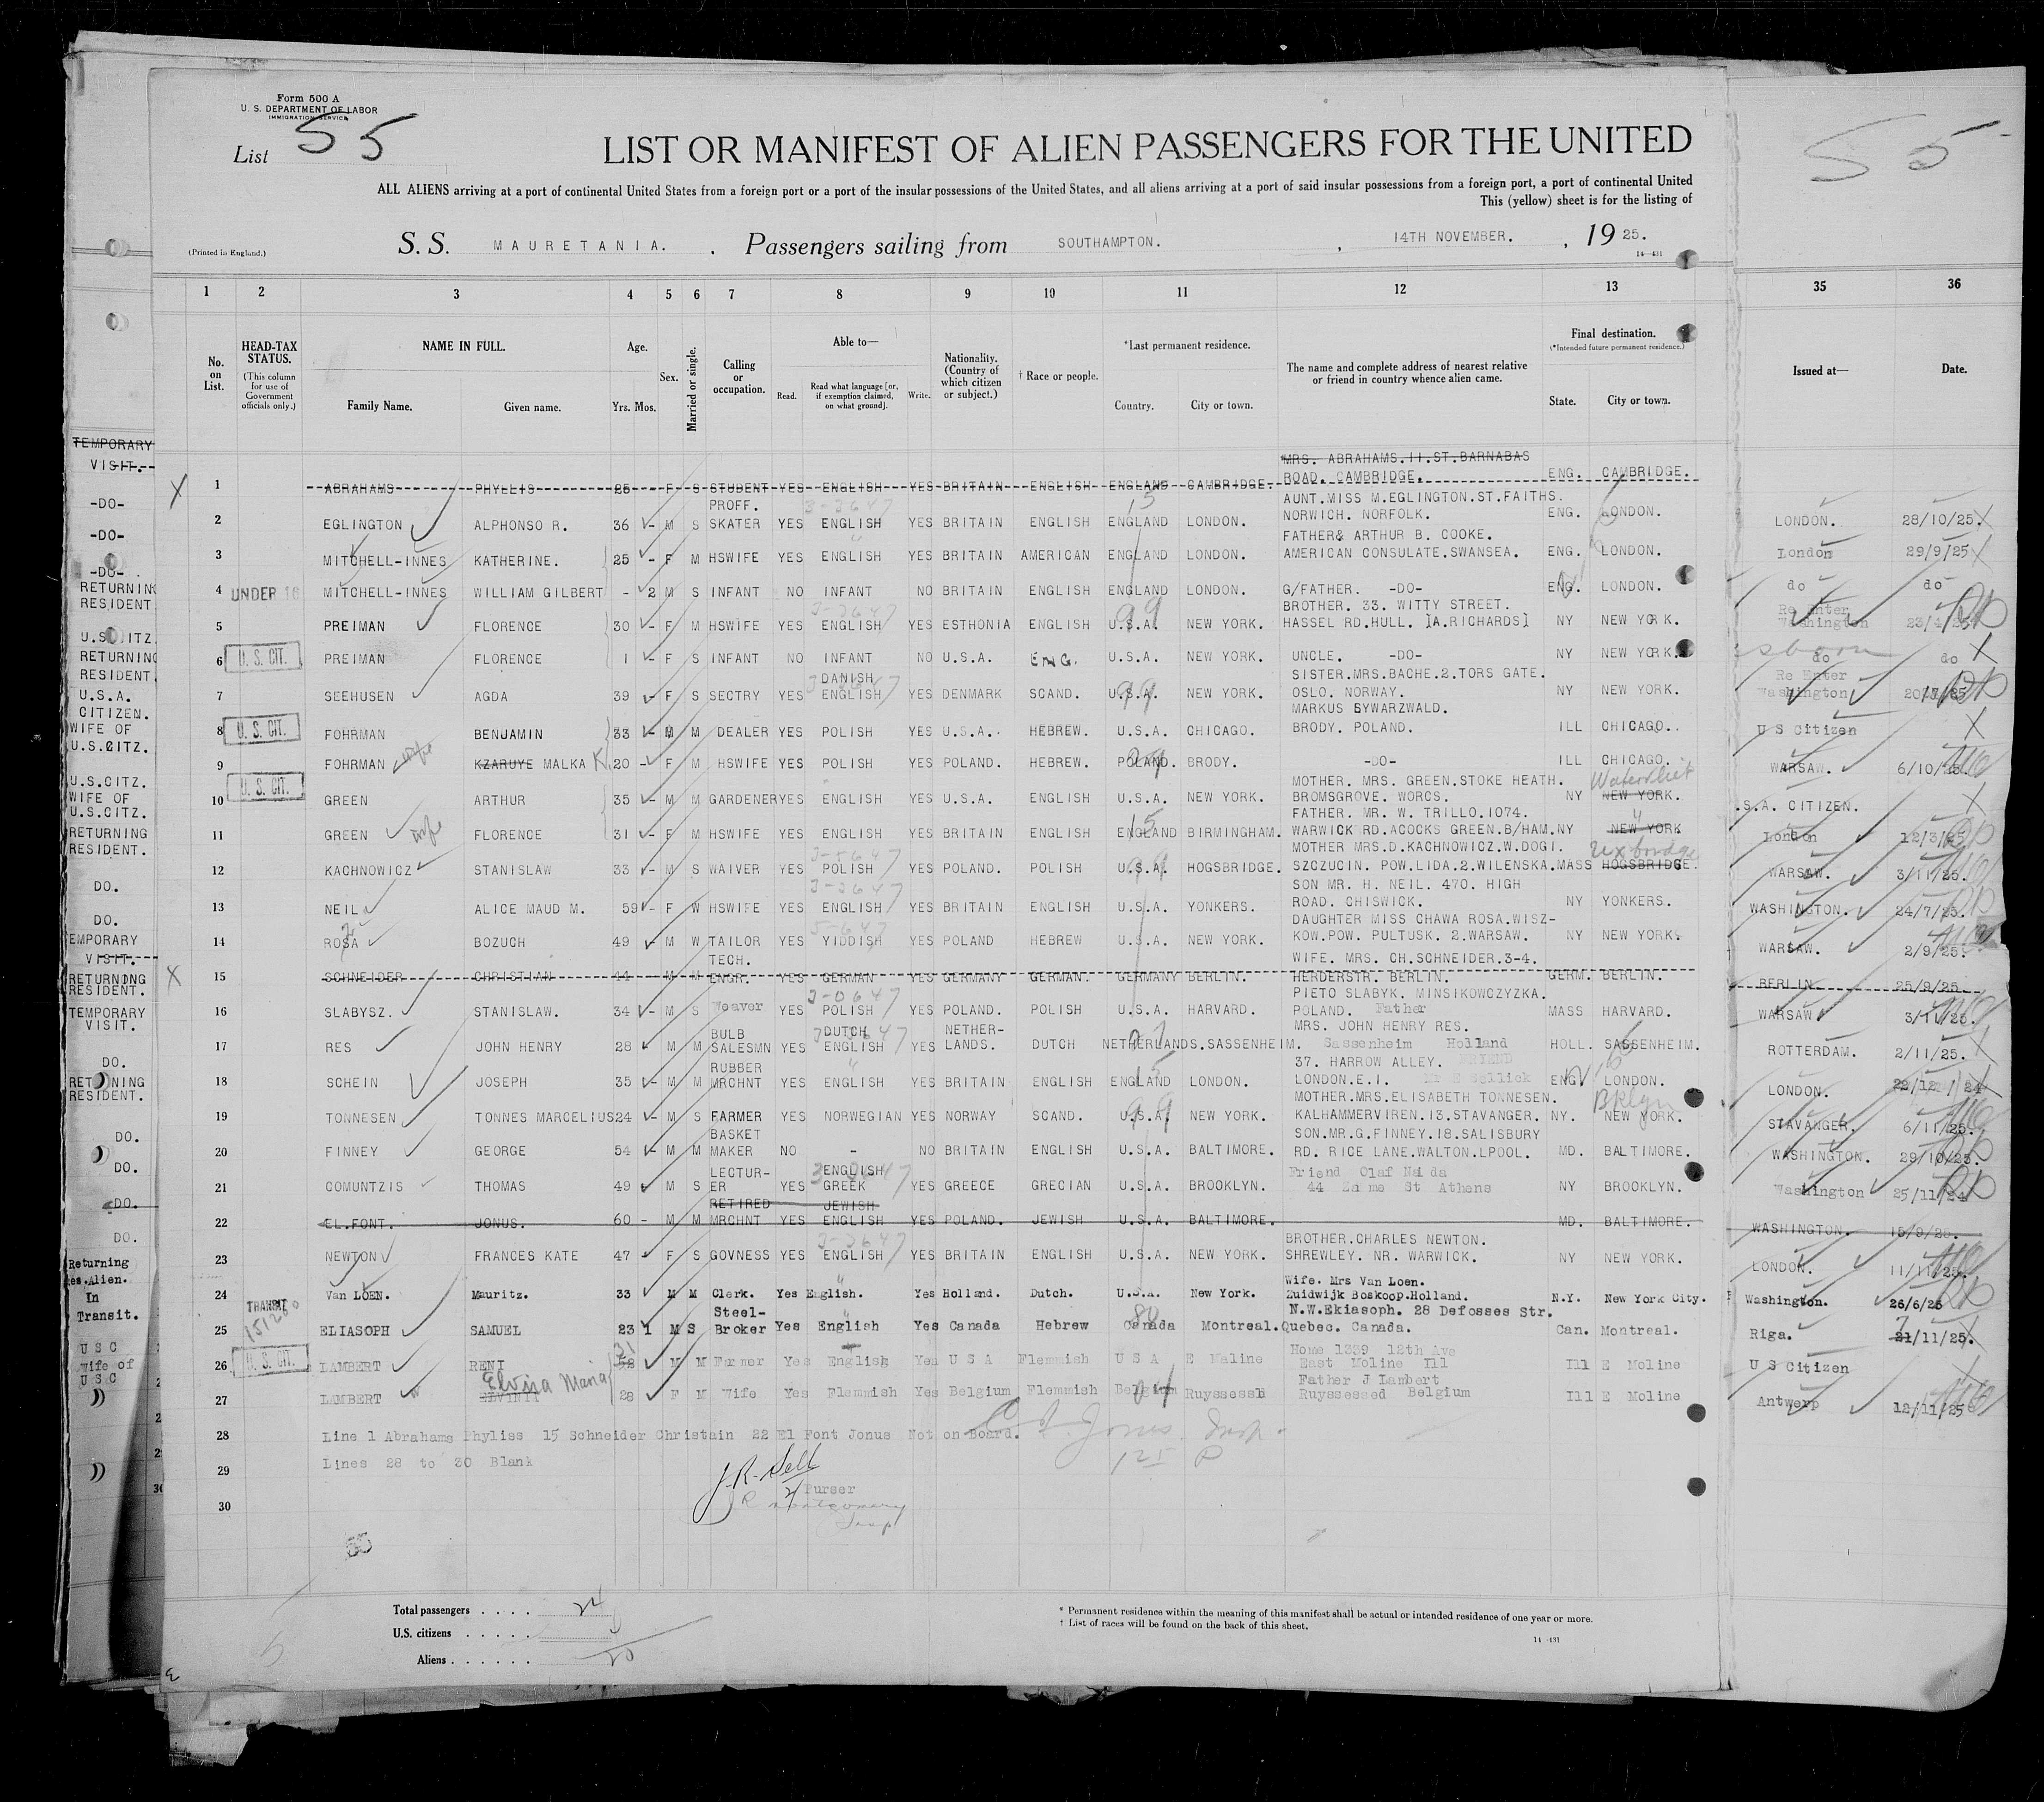 Form 500 A
U. S. DEPARTMENT OF LABOR
IMMIGRATION SERVICE
List 55
LIST OR MANIFEST OF ALIEN PASSENGERS FOR THE UNITED
55
ALL ALIENS arriving at a port of continental United States from a foreign port or a port of the insular possessions of the United States, and all aliens arriving at a port of said insular possessions from a foreign port, a port of continental United
This (yellow) sheet is for the listing of
(Printed in England.)
S. S. MAURETANIA. , Passengers sailing from SOUTHAMPTON. , 14TH NOVEMBER. , 19 25.
14—431
1 2 3 4 5 6 7 8 9 10 11 12 13 35 36
No. on List.
HEAD-TAX STATUS.
(This column for use of Government officials only.)
NAME IN FULL.
Family Name. Given name.
Age.
Yrs. Mos.
Sex.
Married or single.
Calling or occupation.
Able to—
Read. Read what language [or, if exemption claimed, on what ground]. Write.
Nationality. (Country of which citizen or subject.)
† Race or people.
*Last permanent residence.
Country. City or town.
The name and complete address of nearest relative or friend in country whence alien came.
Final destination.
(*Intended future permanent residence.)
State. City or town.
Issued at— Date.
TEMPORARY VISIT.
X 1 ABRAHAMS PHYLLIS 25 - F S STUDENT YES ENGLISH YES BRITAIN ENGLISH ENGLAND CAMBRIDGE. MRS. ABRAHAMS.11.ST.BARNABAS ROAD. CAMBRIDGE. ENG. CAMBRIDGE.
-DO- 2 EGLINGTON ALPHONSO R. 36 - M S PROFF. SKATER YES ENGLISH YES BRITAIN ENGLISH ENGLAND LONDON. AUNT.MISS M.EGLINGTON.ST.FAITHS. NORWICH. NORFOLK. ENG. LONDON. LONDON. 28/10/25.
-DO- 3 MITCHELL-INNES KATHERINE. 25 - F M HSWIFE YES ENGLISH YES BRITAIN AMERICAN ENGLAND LONDON. FATHER& ARTHUR B. COOKE. AMERICAN CONSULATE.SWANSEA. ENG. LONDON. London 29/9/25
-DO- 4 UNDER 16 MITCHELL-INNES WILLIAM GILBERT - 2 M S INFANT NO INFANT NO BRITAIN ENGLISH ENGLAND LONDON. G/FATHER. -DO- ENG. LONDON. do do
RETURNING RESIDENT 5 PREIMAN FLORENCE 30 - F M HSWIFE YES ENGLISH YES ESTHONIA ENGLISH U.S.A. NEW YORK. BROTHER. 33. WITTY STREET. HASSEL RD.HULL. ]A.RICHARDS] NY NEW YORK. Re Enter Washington
U.S.CITZ. 6 U. S. CIT. PREIMAN FLORENCE 1 - F S INFANT NO INFANT NO U.S.A. ENG. U.S.A. NEW YORK. UNCLE. -DO- NY NEW YORK. do do
RETURNING RESIDENT 7 SEEHUSEN AGDA 39 - F S SECTRY YES DANISH ENGLISH YES DENMARK SCAND. U.S.A. NEW YORK. SISTER.MRS.BACHE.2.TORS GATE. OSLO. NORWAY. NY NEW YORK. Re Enter Washington
U.S.A. CITIZEN. 8 U. S. CIT. FOHRMAN BENJAMIN 33 - M M DEALER YES POLISH YES U.S.A. HEBREW. U.S.A. CHICAGO. MARKUS BYWARZWALD. BRODY. POLAND. ILL CHICAGO. U S Citizen
WIFE OF U.S.CITZ. 9 FOHRMAN wife KZARUYE MALKA K. 20 - F M HSWIFE YES POLISH YES POLAND. HEBREW. POLAND. BRODY. -DO- ILL CHICAGO. WARSAW. 6/10/25.
U.S.CITZ. 10 U. S. CIT. GREEN ARTHUR 35 - M M GARDENER YES ENGLISH YES U.S.A. ENGLISH U.S.A. NEW YORK. MOTHER. MRS. GREEN.STOKE HEATH. BROMSGROVE. WORCS. NY NEW YORK. Watervliet .S.A. CITIZEN.
WIFE OF U.S.CITZ. 11 GREEN wife FLORENCE 31 - F M HSWIFE YES ENGLISH YES BRITAIN ENGLISH ENGLAND BIRMINGHAM. FATHER. MR. W. TRILLO.1074. WARWICK RD.ACOCKS GREEN.B/HAM. NY NEW YORK London 12/3/25
RETURNING RESIDENT. 12 KACHNOWICZ STANISLAW 33 - M S WAIVER YES POLISH YES POLAND. POLISH U.S.A. HOGSBRIDGE. MOTHER MRS.D.KACHNOWICZ.W.DOGI. SZCZUCIN. POW.LIDA.2.WILENSKA. MASS HOGSBRIDGE. Uxbridge WARSAW. 3/11/25.
DO. 13 NEIL ALICE MAUD M. 59 - F W HSWIFE YES ENGLISH YES BRITAIN ENGLISH U.S.A. YONKERS. SON MR. H. NEIL. 470. HIGH ROAD. CHISWICK. NY YONKERS. WASHINGTON. 24/7/25.
DO. 14 ROSA BOZUCH 49 - M W TAILOR YES YIDDISH YES POLAND HEBREW U.S.A. NEW YORK. DAUGHTER MISS CHAWA ROSA.WISZ-KOW.POW. PULTUSK. 2.WARSAW. NY NEW YORK. WARSAW. 2/9/25.
TEMPORARY VISIT. X 15 SCHNEIDER CHRISTIAN 44 - M M TECH. ENGR. YES GERMAN YES GERMANY GERMAN. GERMANY BERLIN. WIFE. MRS. CH.SCHNEIDER.3-4. HERDERSTR. BERLIN. GERM. BERLIN. BERLIN 25/9/25.
RETURNING RESIDENT. 16 SLABYSZ. STANISLAW. 34 - M S Weaver YES POLISH YES POLAND. POLISH U.S.A. HARVARD. PIETO SLABYK. MINSIKOWCZYZKA. POLAND. Father MASS HARVARD. WARSAW 3/11/25.
TEMPORARY VISIT. 17 RES JOHN HENRY 28 M M BULB SALESMN YES DUTCH ENGLISH YES NETHER-LANDS. DUTCH NETHERLANDS.SASSENHEIM. MRS. JOHN HENRY RES. Sassenheim Holland HOLL. SASSENHEIM. ROTTERDAM. 2/11/25.
DO. 18 SCHEIN JOSEPH 35 - M M RUBBER MRCHNT YES ENGLISH YES BRITAIN ENGLISH ENGLAND LONDON. 37. HARROW ALLEY. FRIEND LONDON.E.1. ENG LONDON. LONDON.
RETURNING RESIDENT. 19 TONNESEN TONNES MARCELIUS 24 - M S FARMER YES NORWEGIAN YES NORWAY SCAND. U.S.A. NEW YORK. MOTHER.MRS.ELISABETH TONNESEN. KALHAMMERVIREN.13.STAVANGER. NY. NEW YORK. Bklyn STAVANGER. 6/11/25.
DO. 20 FINNEY GEORGE 54 - M M BASKET MAKER NO - NO BRITAIN ENGLISH U.S.A. BALTIMORE. SON.MR.G.FINNEY.18.SALISBURY RD. RICE LANE.WALTON.LPOOL. MD. BALTIMORE. WASHINGTON. 29/10/25.
DO. 21 COMUNTZIS THOMAS 49 M S LECTUR-ER YES ENGLISH GREEK YES GREECE GRECIAN U.S.A. BROOKLYN. Friend Olaf 44 St Athens NY BROOKLYN. Washington 25/11/24
DO. 22 EL.FONT. JONUS. 60 - M M RETIRED MRCHNT YES JEWISH ENGLISH YES POLAND. JEWISH U.S.A. BALTIMORE. MD. BALTIMORE. WASHINGTON.
DO. 23 NEWTON FRANCES KATE 47 - F S GOVNESS YES ENGLISH YES BRITAIN ENGLISH U.S.A. NEW YORK. BROTHER.CHARLES NEWTON. SHREWLEY. NR. WARWICK. NY NEW YORK. LONDON. 11/11/25.
Returning es.Alien. 24 Van LOEN. Mauritz. 33 M M Clerk. Yes English. Yes Holland. Dutch. U.S.A. New York. Wife. Mrs Van Loen. Zuidwijk Boskoop.Holland. N.Y. New York City. Washington. 26/6/25
In Transit. 25 TRANSIT ELIASOPH SAMUEL 23 1 M S Steel-Broker Yes English Yes Canada Hebrew Canada Montreal. N.W.Ekiasoph. 28 Defosses Str. Quebec. Canada. Can. Montreal. Riga. 21/11/25.
U S C 26 U. S. CIT. LAMBERT RENI 31 M M Farmer Yes English Yes U S A Flemmish U S A E Maline Home 1339 12th Ave East Moline Ill Ill E Moline U S Citizen
Wife of U S C 27 LAMBERT W ELVINIA Elvira Maria 28 F M Wife Yes Flemmish Yes Belgium Flemmish Belgium Ruyssessh Father J Lambert Ruyssesed Belgium Ill E Moline Antwerp 12/11/25
28 Line 1 Abrahams Phyliss 15 Schneider Christain 22 El Font Jonus Not on Board. Jones. Insp.
29 Lines 28 to 30 Blank
J. R. Sell
Purser
30
J R Montgomery
Insp
55
Total passengers . . . . 24
U.S. citizens . . . . .
Aliens . . . . . . 20
* Permanent residence within the meaning of this manifest shall be actual or intended residence of one year or more.
† List of races will be found on the back of this sheet.
14—431